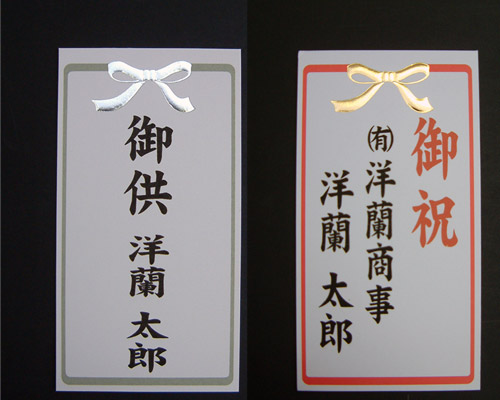 御供
洋蘭 太郎
御祝
㈲洋蘭商事
洋蘭 太郎